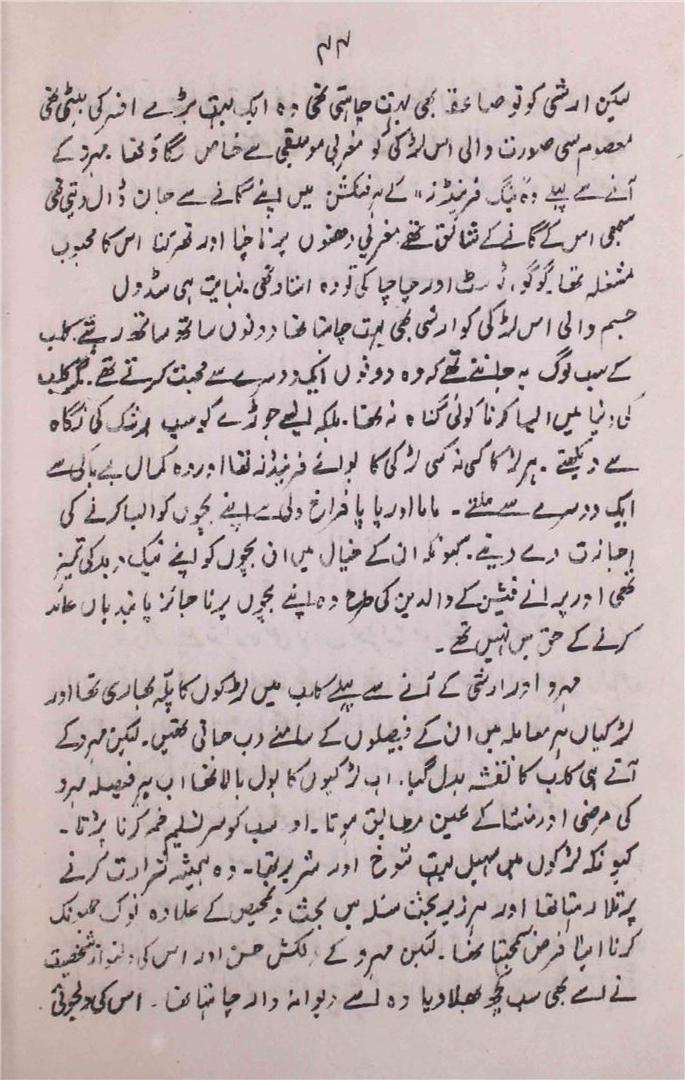 ۴۴
لیکن ارشی کو تو صاعقہ بھی بہت چاہتی تھی وہ ایک بہت بڑے افسر کی بیٹی تھی
معصوم سی صورت والی اس لڑکی کو مغربی موسیقی سے خاص لگاؤ تھا۔ مہرو کے
آنے سے پہلے وہ ینگ فرینڈز" کے ہر فنکشن میں اپنے گانے سے جان ڈال دیتی تھی
سبھی اس کے گانے کے شائق تھے مغربی دھنوں پر ناچنا اور تھرکنا اس کا محبوب
مشغلہ تھا گوگو، ٹوسٹ اور چاچا کی تو وہ استاد تھی۔ نہایت ہی سڈول
جسم والی اس لڑکی کو ارشی بھی بہت چاہتا تھا دونوں ساتھ ساتھ رہتے۔ کلب
کے سب لوگ یہ جانتے تھے کہ وہ دونوں ایک دوسرے سے محبت کرتے تھے۔ مگر کلب
کی دنیا میں ایسا کرنا کوئی گناہ نہ تھا۔ بلکہ ایسے جوڑے کو سب رشک کی نگاہ
سے دیکھتے۔ ہر لڑکا کسی نہ کسی لڑکی کا بوائے فرینڈ نہ تھا اور وہ کمال بے باکی سے
ایک دوسرے سے ملتے۔ ماما اور پاپا فراخ دلی سے اپنے بچوں کو ایسا کرنے کی
اجازت دے دیتے۔ کیونکہ ان کے خیال میں ان بچوں کو اپنے نیک و بد کی تمیز
تھی اور پرانے فیشن کے والدین کی طرح وہ اپنے بچوں پر ناجائز پابندیاں عائد
کرنے کے حق میں نہیں تھے۔
مہرو اور ارشی کے آنے سے پہلے کلب میں لڑکوں کا پلّہ بھاری تھا اور
لڑکیاں ہر معاملہ میں ان کے فیصلوں کے سامنے دب جاتی تھیں۔ لیکن مہرو کے
آتے ہی کلب کا نقشہ بدل گیا۔ اب لڑکیوں کا بول بالا تھا اب ہر فیصلہ مہرو
کی مرضی اور منشا کے عین مطابق ہوتا۔ او سب کو سر تسلیم خم کرنا پڑتا۔
کیونکہ لڑکوں میں سہیل بہت شوخ اور شریر تھا۔ وہ ہمیشہ شرارت کرنے
پر تلا رہتا تھا اور ہر زیر بحث مسئلہ میں بحث و تمحیص کے علاوہ نوک جھونک
کرنا اپنا فرض سمجھتا تھا۔ لیکن مہرو کے دلکش حسن اور اس کی دلنواز شخصیت
نے اسے بھی سب کچھ بھلا دیا وہ اسے دیوانہ وار چاہتا تھا۔ اس کی دلجوئی